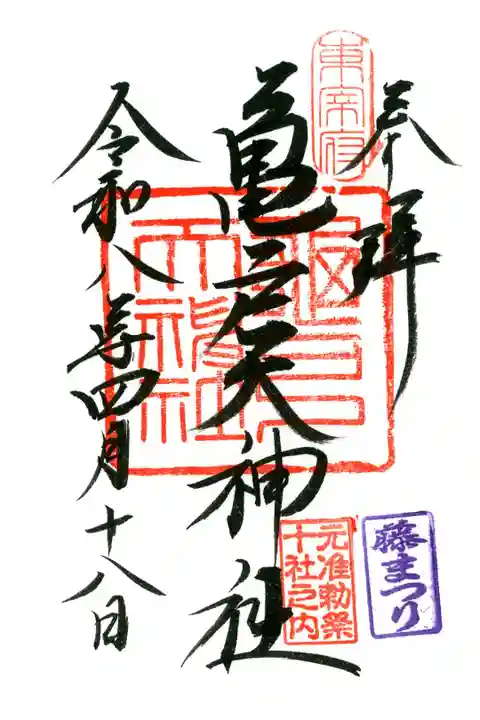 東宰府
奉拝
龜戸天神社
亀戸天神社
令和八年四月十八日
元准勅祭
十社之内
藤まつり